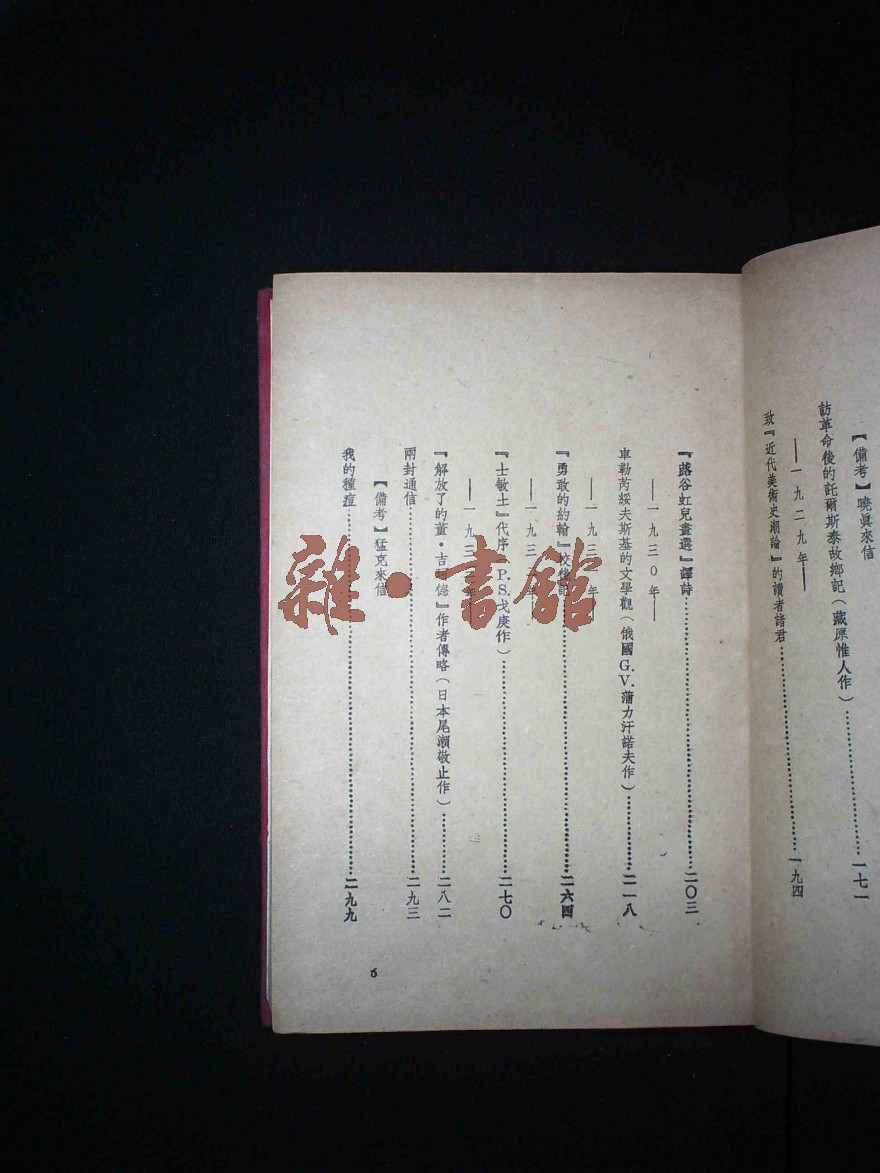 【備考】曉眞來信
訪革命後的託爾斯泰故鄉記(藏原惟人作)……一七一
——一九二九年——
致『近代美術史潮論』的讀者諸君……一九四
『蕗谷虹兒畫選』譯詩……二〇三
——一九三〇年——
車勒芮綏夫斯基的文學觀(俄國G.V.蒲力汗諾夫作)……二一八
——一九三 年——
『勇敢的約翰』校後記……二六四
——一九三 年——
『士敏土』代序(P.S.戈庚作)……二七〇
——一九三 年——
『解放了的董·吉訶德』作者傳略(日本尾瀨敬止作)……二八二
兩封通信……二九三
【備考】猛克來信
我的種痘……二九九
6
雜·書舘